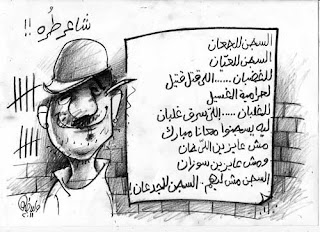 شاعر طره !!
السجن للجعان
السجن للعيان
للغضبان ...... اللى قتل قتيل
لحرامية الغسيل
للغلبان ..... اللى سرق غلبان
ليه يسجنوا معانا مبارك
مش عايز بن اللـ
ومش عايز بن سوزان
السجن مش لدهم . السجن للجدعان !